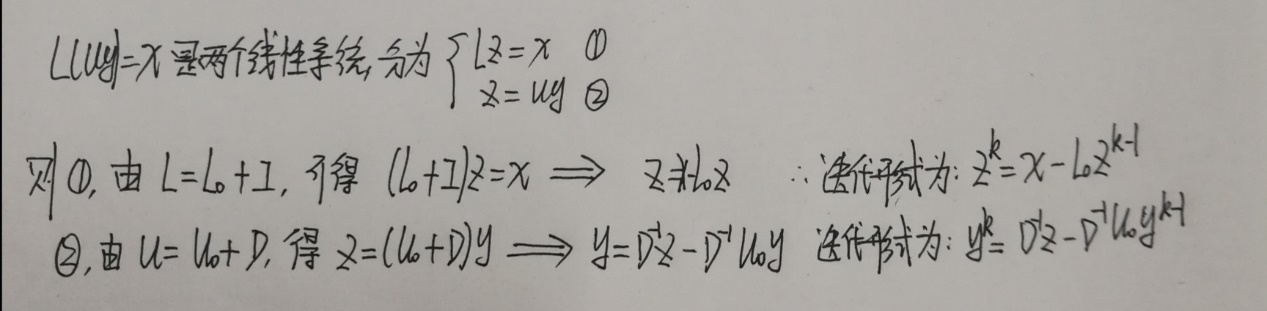 L(Uy)=x是两个线性系统,分为 { Lz=x ①
z=Uy ②
则①,由 L=L₀+I,可得 (L₀+I)z=x ⟹ z=x-L₀z ∴迭代形式为: zᵏ=x-L₀zᵏ⁻¹
②,由 U=U₀+D,得 z=(U₀+D)y ⟹ y=D⁻¹z-D⁻¹U₀y 迭代形式为: yᵏ=D⁻¹z-D⁻¹U₀yᵏ⁻¹